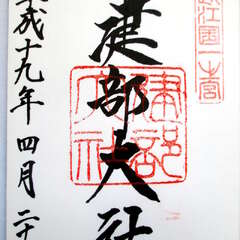 近江國一宮
建部大社
建部大社
平成十九年四月二十